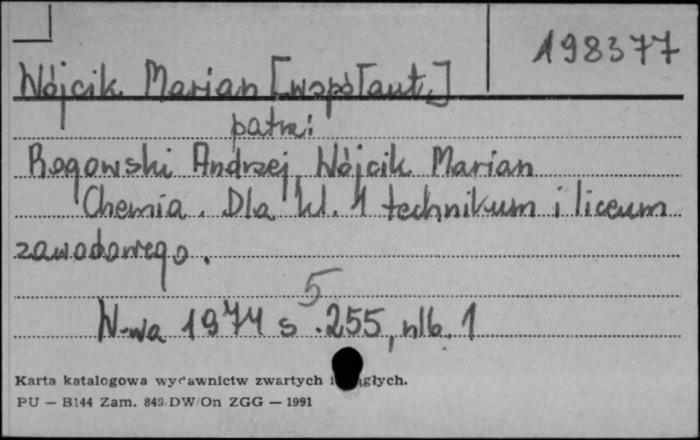 198377
Wójcik Marian [współaut.]
patrz:
Rogowski Andrzej, Wójcik Marian
Chemia. Dla kl. 1 technikum i liceum
zawodowego.
5
W-wa 1974 s. 255, nlb. 1
Karta katalogowa wydawnictw zwartych i ciągłych.
PU — B144 Zam. 849 DW/On ZGG — 1991